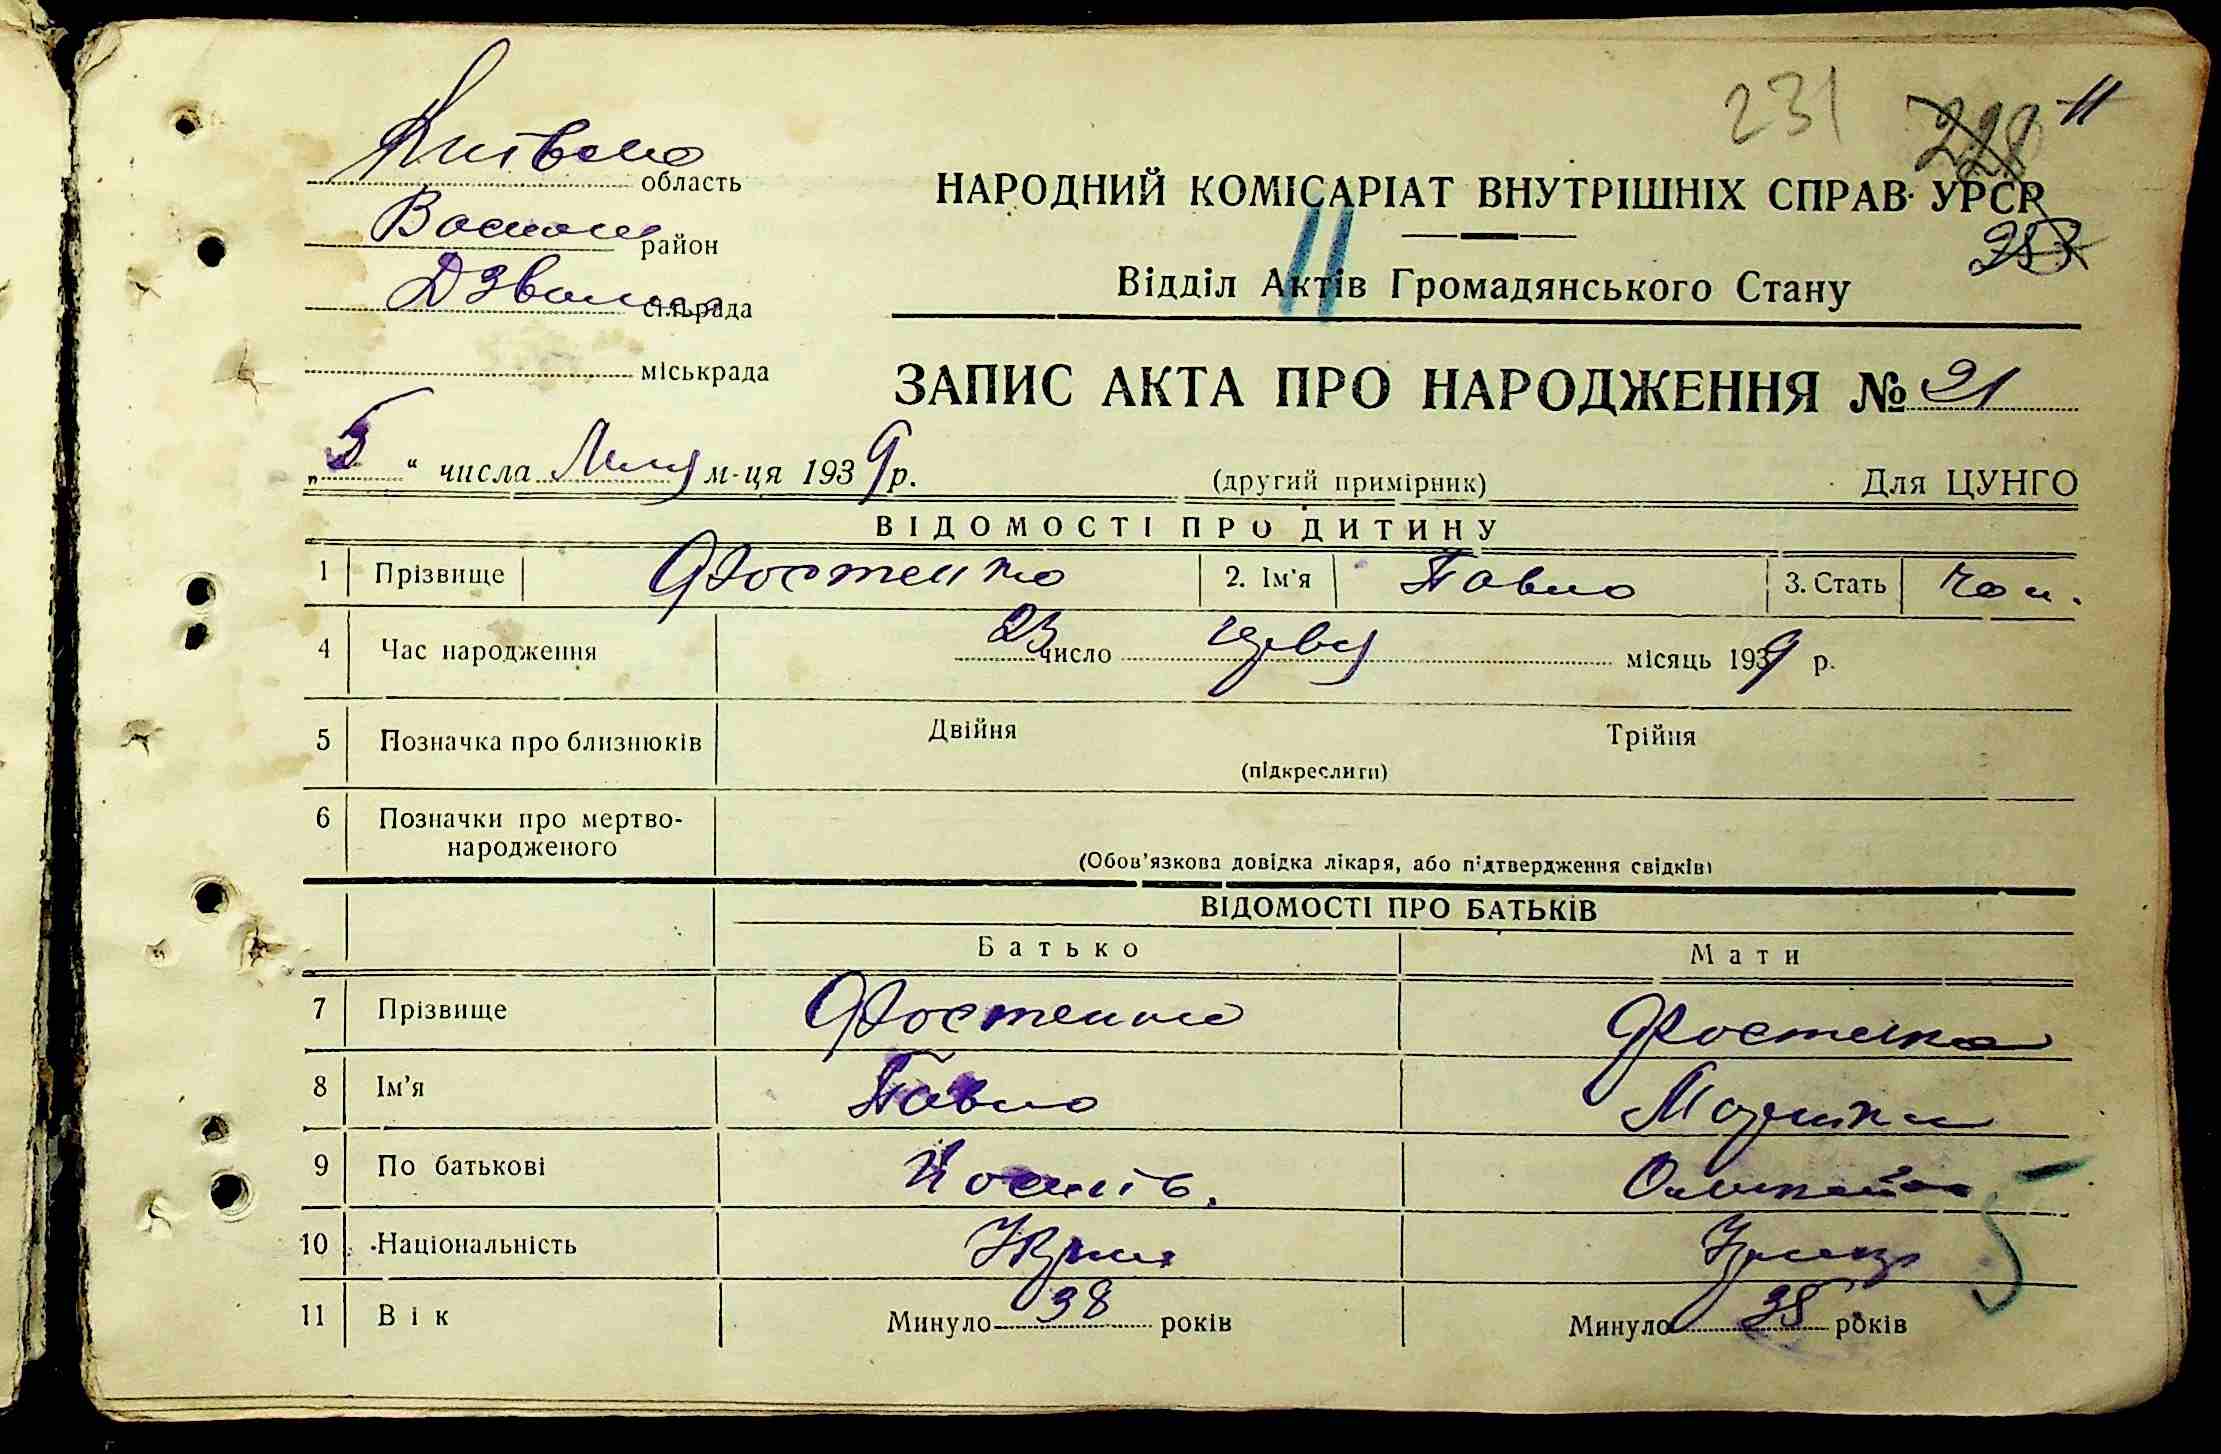 231 228 11
Київсько область
НАРОДНИЙ КОМІСАРІАТ ВНУТРІШНІХ СПРАВ УРСР
район
11
Відділ Актів Громадянського Стану
сільрада
міськрада
ЗАПИС АКТА ПРО НАРОДЖЕННЯ № 21
„5“ числа Липця м-ця 1939 р.
(другий примірник)
Для ЦУНГО
ВІДОМОСТІ ПРО ДИТИНУ
1 Прізвище Фостенко 2. Ім'я Павло 3. Стать чол.
4 Час народження 23 число червня місяць 1939 р.
5 Позначка про близнюків Двійня Трійня
(підкреслити)
6 Позначки про мертво-
народженого
(Обов'язкова довідка лікаря, або підтвердження свідків)
ВІДОМОСТІ ПРО БАТЬКІВ
Батько Мати
7 Прізвище Фостенко Фостенко
8 Ім'я Павло
9 По батькові Йосипів.
10 Національність
11 Вік Минуло 38 років Минуло 38 років
5